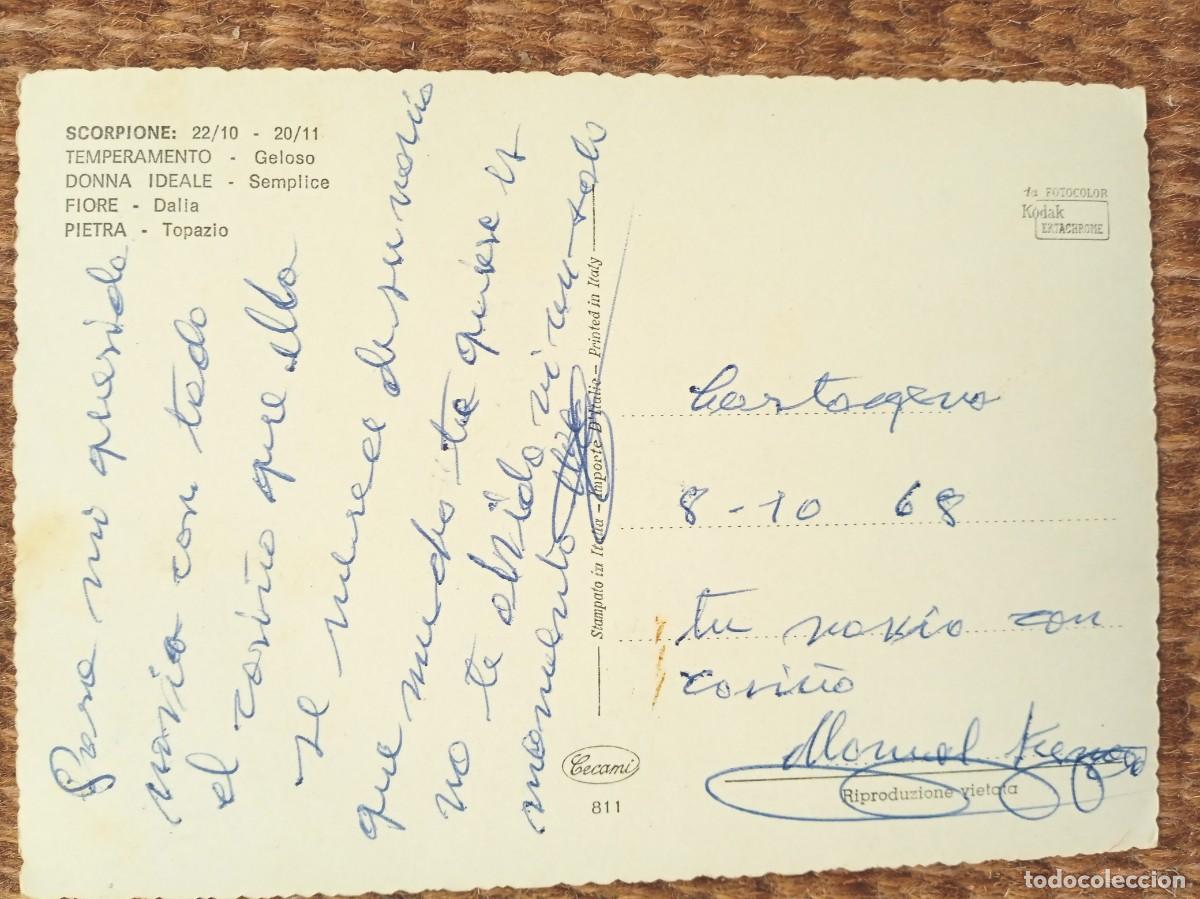 SCORPIONE: 22/10 - 20/11
TEMPERAMENTO - Geloso
DONNA IDEALE - Semplice
FIORE - Dalia
PIETRA - Topazio
Para mi querida
novia con todo
el cariño que ella
se merece de su novio
que mucho te quiere y
no te olvida ni un solo
momento
Stampato in Italia - Importe D'Italie - Printed in Italy
Cecami
811
1a FOTOCOLOR
Kodak
EKTACHROME
Cartagena
8-10 68
tu novio con
cariño
Manuel
Riproduzione vietata
todocoleccion